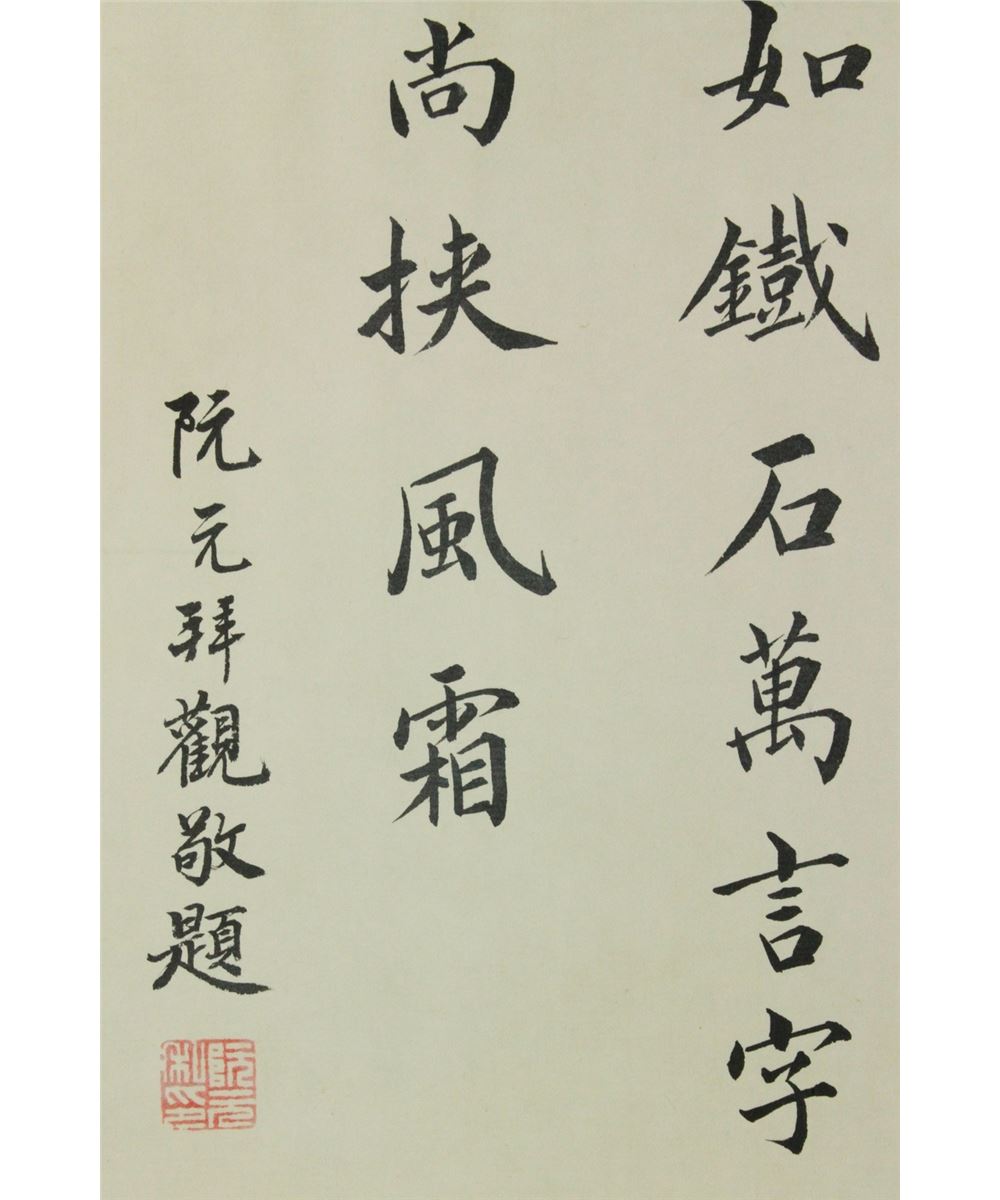 如鐵石萬言字
尚挾風霜
阮元拜觀敬題
阮元私印